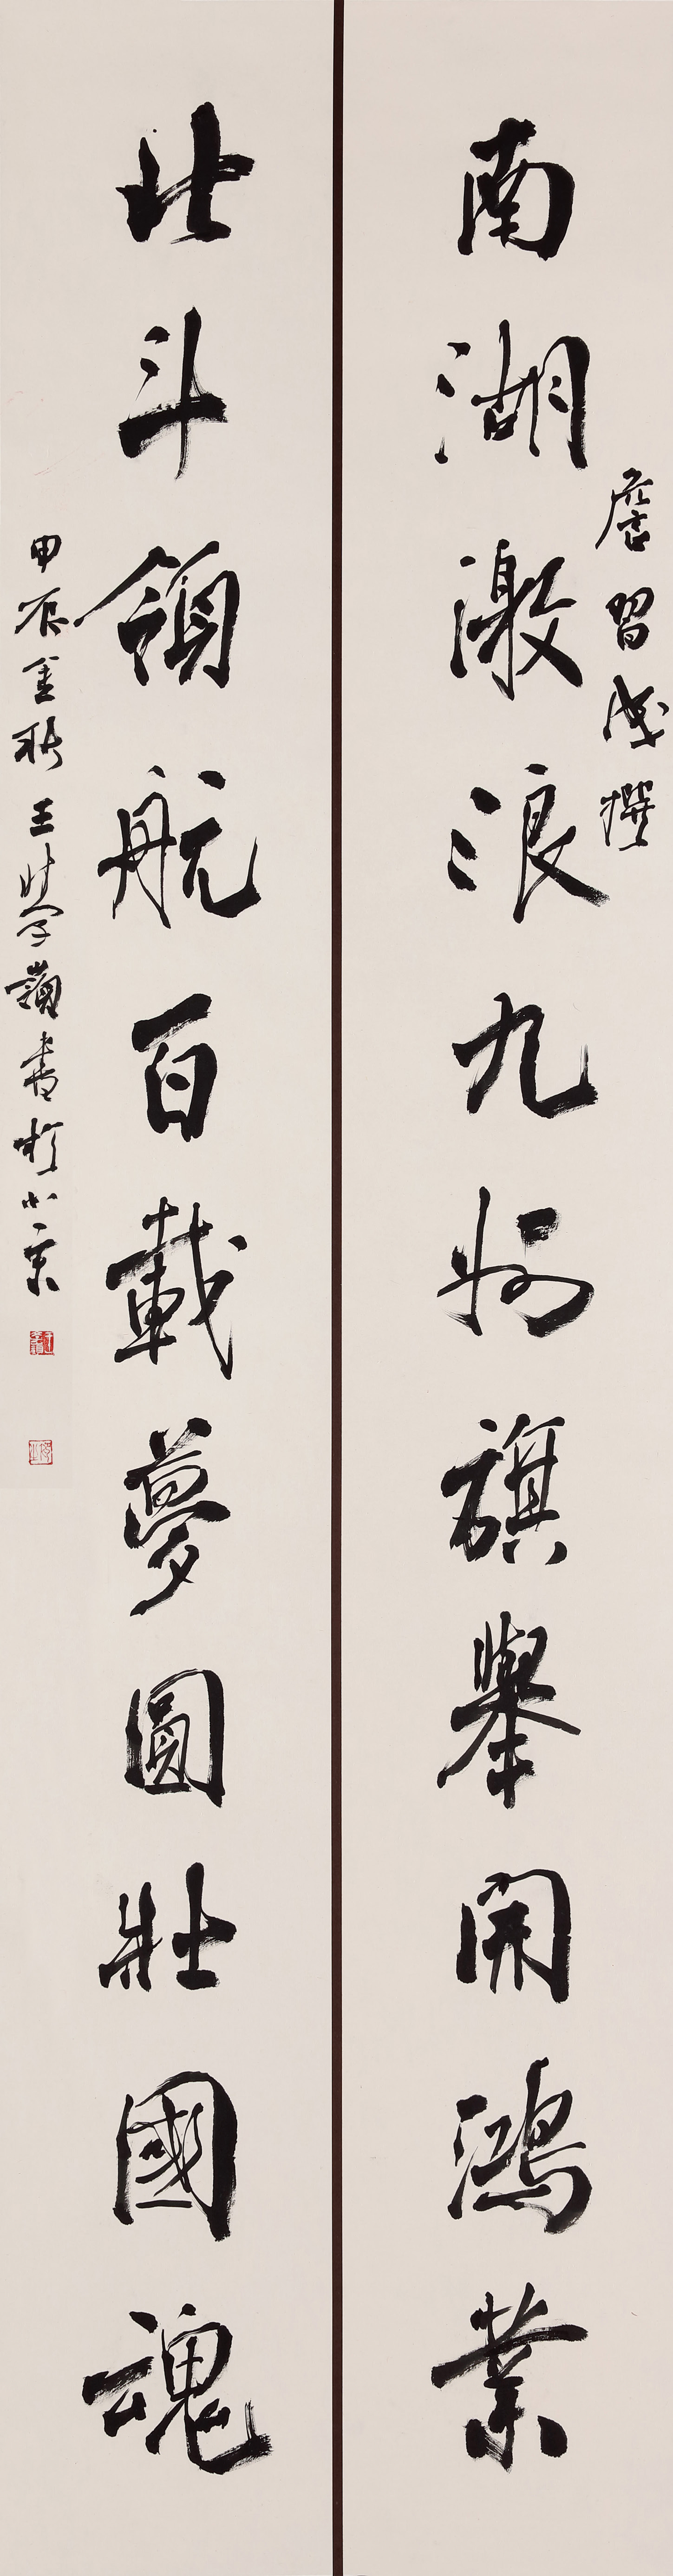 南湖激浪九州旗舉開鴻業
詹習成撰
北斗領航百載夢圓壯國魂
甲辰金秋王學嶺書於北京